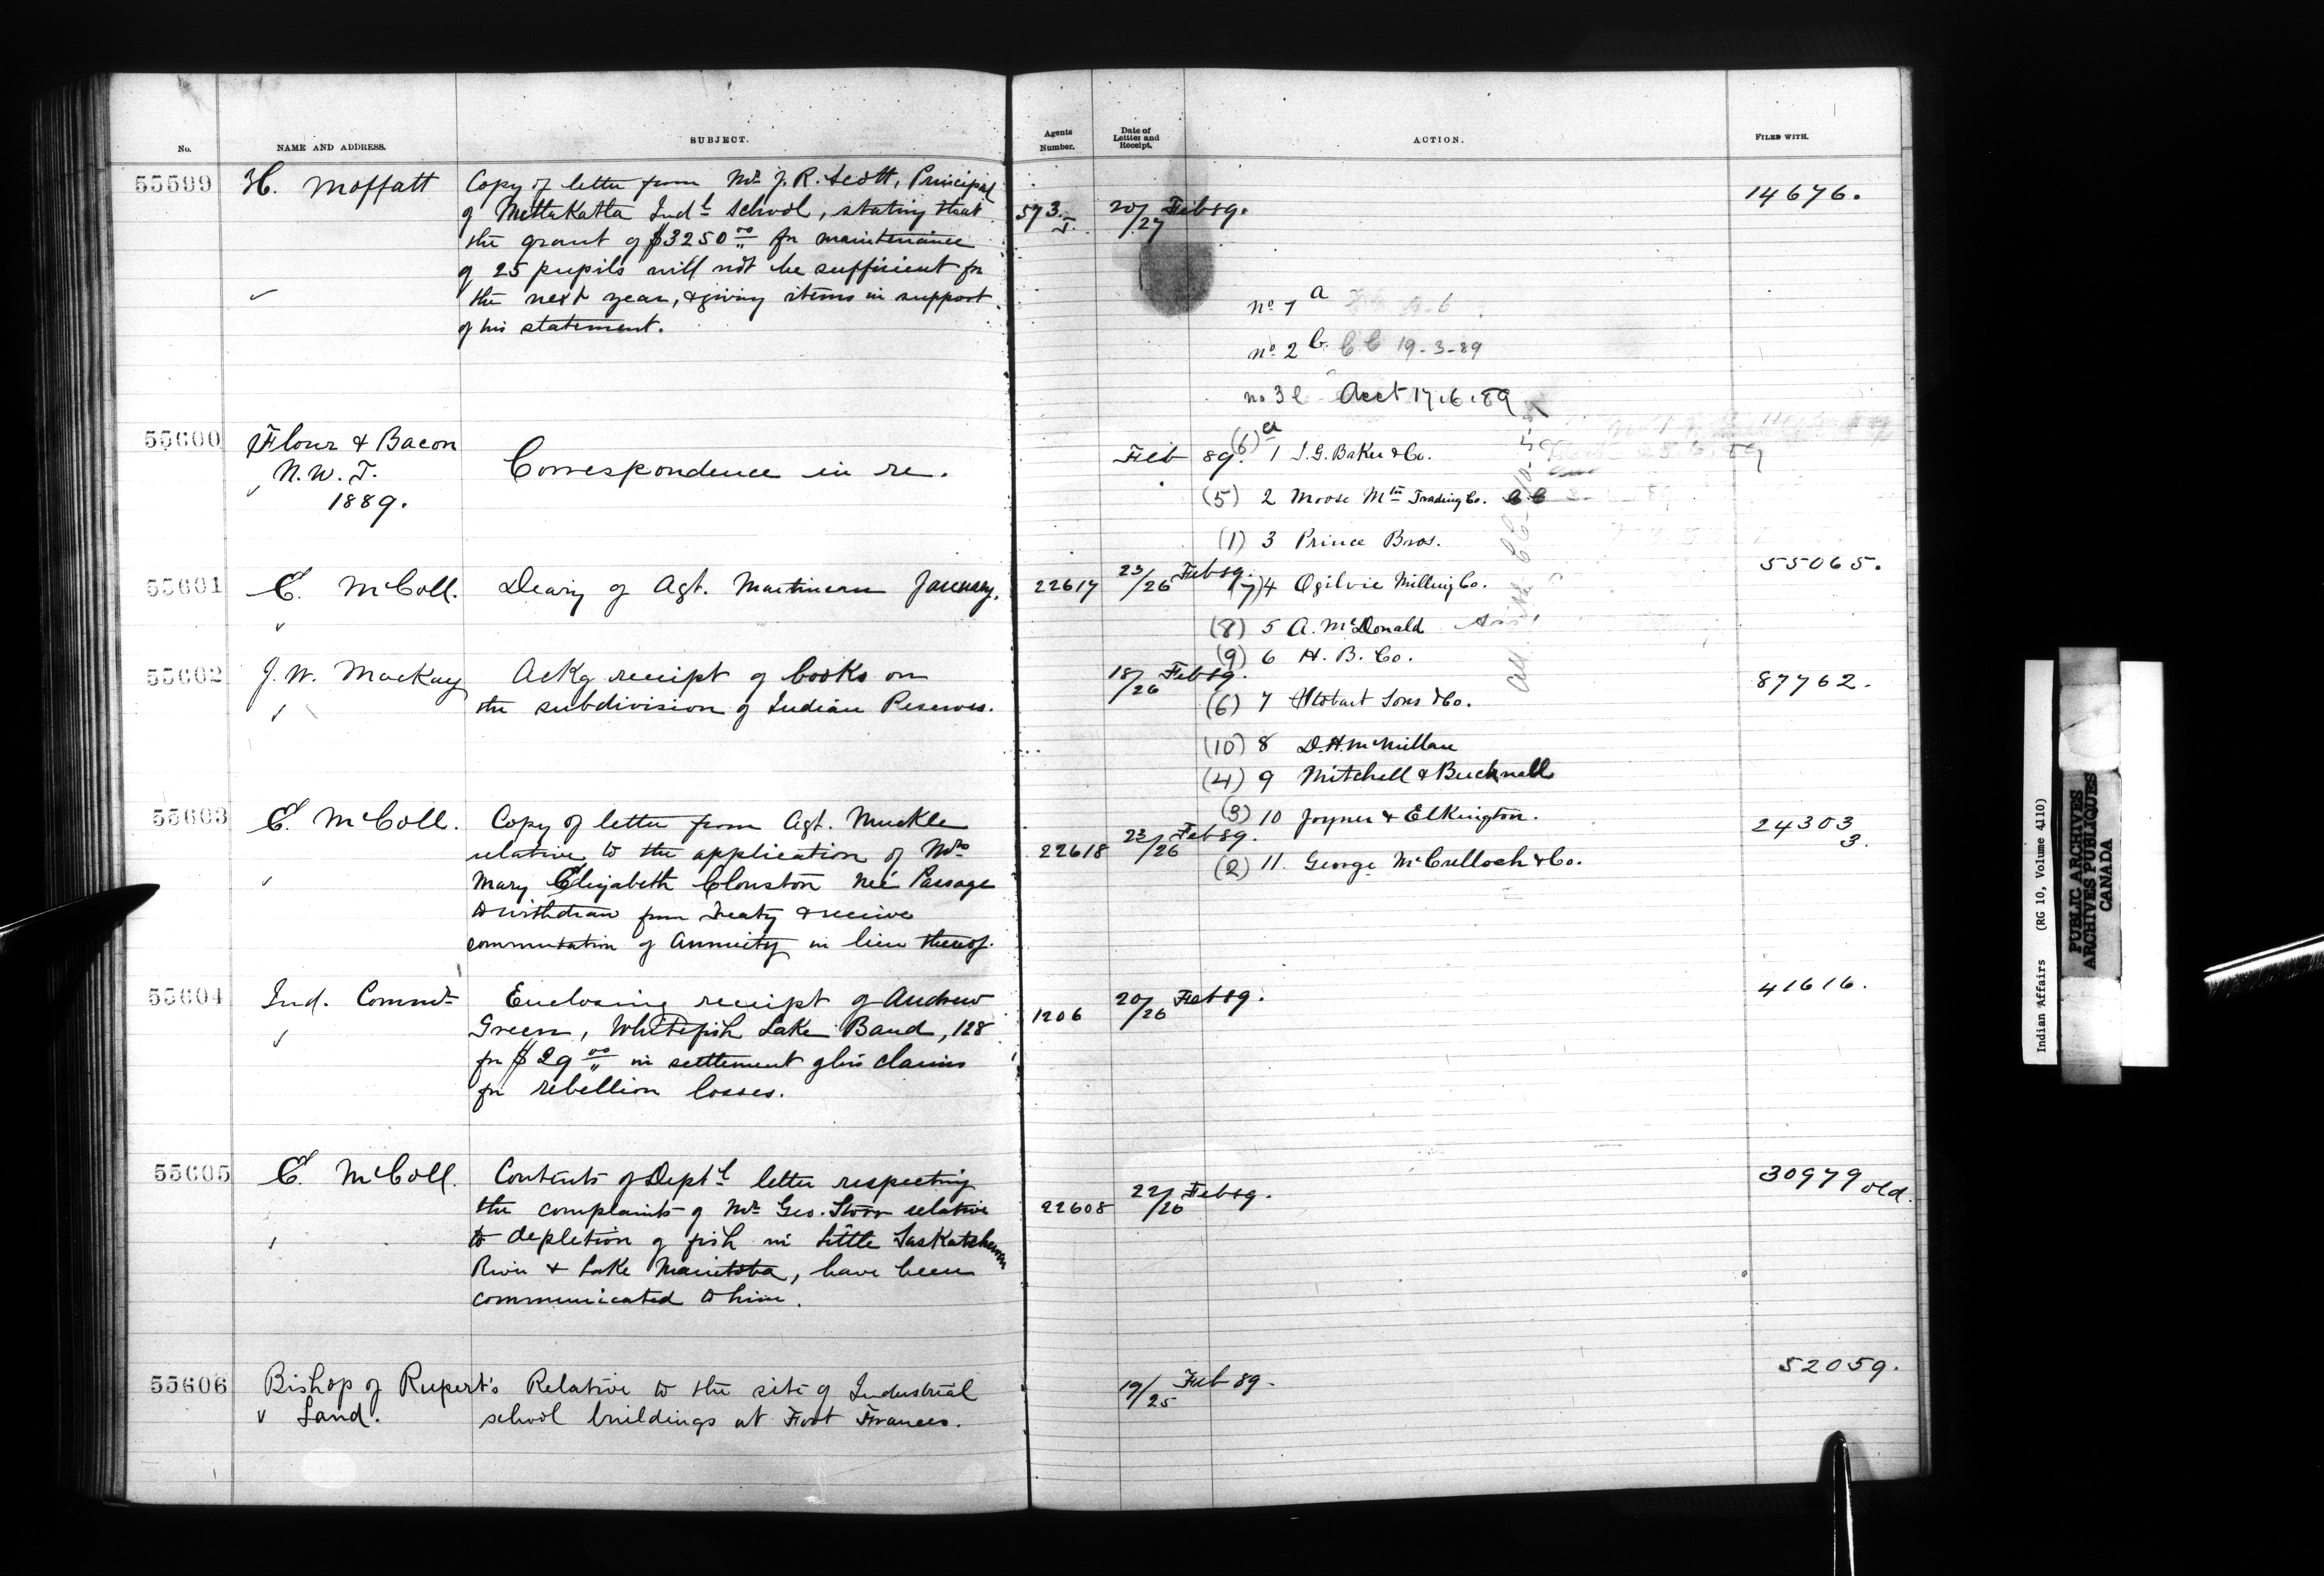 No. NAME AND ADDRESS. SUBJECT. Agents Number. Date of Letter and Receipt. ACTION. FILED WITH.
55599 H. Moffatt Copy of letter from Mr J. R. Scott, Principal
of MettaKatla Indl School, stating that 573. 20/27 Feb 89. 14676.
the grant of $3250 00 for maintenance
of 25 pupils will not be sufficient for
the next year, & giving items in support
of his statement.
no 1 a
no 2 b. CC 19-3-89
no 3 Acct 17.6.89
55600 Flour & Bacon
N. W. T.
1889.
Correspondence in re.
Feb 89. (6) a 1 I. G. Baker & Co.
(5) 2 Moose Mtn Trading Co.
(1) 3 Prince Bros.
55601 E. McColl. Diary of Agt. Martineau January. 22617 23/26 Feb 89. 55065.
(7) 4 Ogilvie Milling Co.
(8) 5 A. McDonald
(9) 6 H. B. Co.
55602 J. W. Mackay Ackg receipt of books on
the subdivision of Indian Reserves. 18/26 Feb 89. 87762.
(6) 7 Stobart Sons & Co.
(10) 8 D. H. McMillan
(4) 9 Mitchell & Bucknall
(3) 10 Joyner & Elkington.
(2) 11. George McCulloch & Co.
55603 E. McColl. Copy of letter from Agt. Muckle
relative to the application of Mrs
Mary Elizabeth Clouston neé Passage
to withdraw from Treaty & receive
commutation of Annuity in lieu thereof.
22618 23/26 Feb 89. 24303
3.
55604 Ind. Commr Enclosing receipt of Andrew
Green, Whitefish Lake Band, 128
for $29 00 in settlement of his claims
for rebellion losses.
1206 20/26 Feb 89. 41616.
55605 E. McColl. Contents of Deptl letter respecting
the complaints of Mr Geo. Storr relative
to depletion of fish in Little Saskatchewan
River & Lake Manitoba, have been
communicated to him.
22608 22/26 Feb 89. 30979 old.
55606 Bishop of Rupert's
Land.
Relative to the site of Industrial
school buildings at Fort Frances.
19/25 Feb 89. 52059.
Indian Affairs (RG 10, Volume 4110)
PUBLIC ARCHIVES
ARCHIVES PUBLIQUES
CANADA